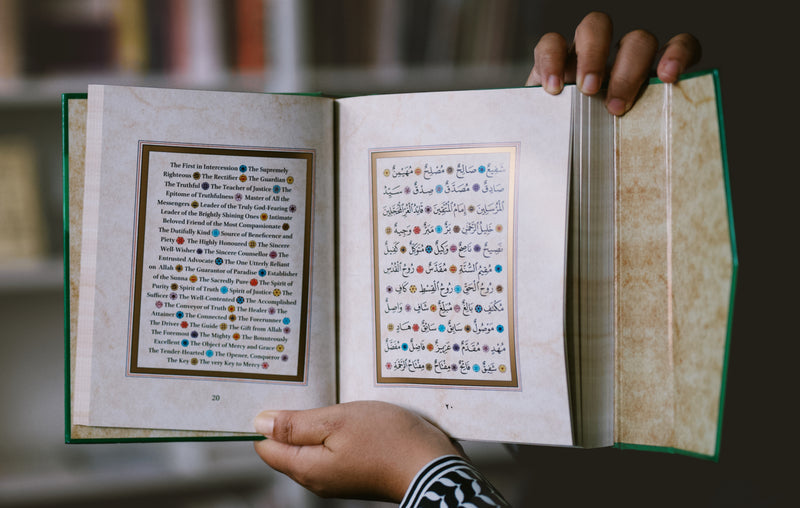 The First in Intercession The Supremely
Righteous The Rectifier The Guardian
The Truthful The Teacher of Justice The
Epitome of Truthfulness Master of All the
Messengers Leader of the Truly God-Fearing
Leader of the Brightly Shining Ones Intimate
Beloved Friend of the Most Compassionate
The Dutifully Kind Source of Beneficence and
Piety The Highly Honoured The Sincere
Well-Wisher The Sincere Counsellor The
Entrusted Advocate The One Utterly Reliant
on Allah The Guarantor of Paradise Establisher
of the Sunna The Sacredly Pure The Spirit of
Purity Spirit of Truth Spirit of Justice The
Sufficer The Well-Contented The Accomplished
The Conveyor of Truth The Healer The
Attainer The Connected The Forerunner
The Driver The Guide The Gift from Allah
The Foremost The Mighty The Bounteously
Excellent The Object of Mercy and Grace
The Tender-Hearted The Opener, Conqueror
The Key The very Key to Mercy
20
شَفِيعٌ صَالِحٌ مُصْلِحٌ مُهَيْمِنٌ
صَادِقٌ مُصَدَّقٌ صِدْقٌ سَيِّدُ
الْمُرْسَلِينَ إِمَامُ الْمُتَّقِينَ قَائِدُ الْغُرِّ الْمُحَجَّلِينَ
خَلِيلُ الرَّحْمٰنِ بَرٌّ مَبَرٌّ وَجِيهٌ
نَصِيحٌ نَاصِحٌ وَكِيلٌ مُتَوَكِّلٌ كَفِيلٌ
مُقِيمُ السُّنَّةِ مُقَدَّسٌ رُوحُ الْقُدُسِ
رُوحُ الْحَقِّ رُوحُ الْقِسْطِ كَافٍ
مُكْتَفٍ بَالِغٌ مُبَلِّغٌ شَافٍ وَاصِلٌ
مَوْصُولٌ سَابِقٌ سَائِقٌ هَادٍ
مُهْدٍ مُقَدَّمٌ عَزِيزٌ فَاضِلٌ مُفَضَّلٌ
شَفِيقٌ فَاتِحٌ مِفْتَاحٌ مِفْتَاحُ الرَّحْمَةِ
٢٠